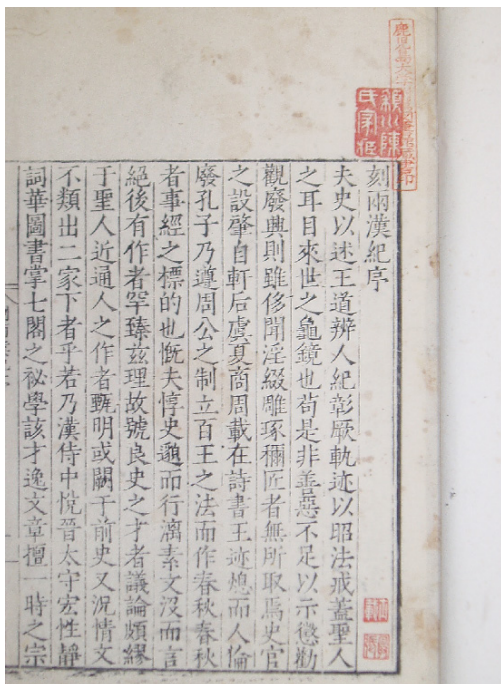 刻兩漢紀序
夫史以述王道辨人紀彰厥軌迹以昭法戒蓋聖人
之耳目來世之龜鏡也茍是非善惡不足以示懲勸
觀廢興則雖侈聞淫綴雕琢禰匠者無所取焉史官
之設肇自軒后虞夏商周載在詩書王迹熄而人倫
廢孔子乃遵周公之制立百王之法而作春秋春秋
者事經之標的也慨夫惇史遞而行漓素文沒而言
絕後有作者罕臻茲理故號良史之才者議論頗繆
于聖人近通人之作者甄明或闕于前史又況情文
不類出二家下者乎若乃漢侍中悅晉太守宏性靜
詞華圖書掌七閣之祕學該才逸文章擅一時之宗
潁川陳
氏家